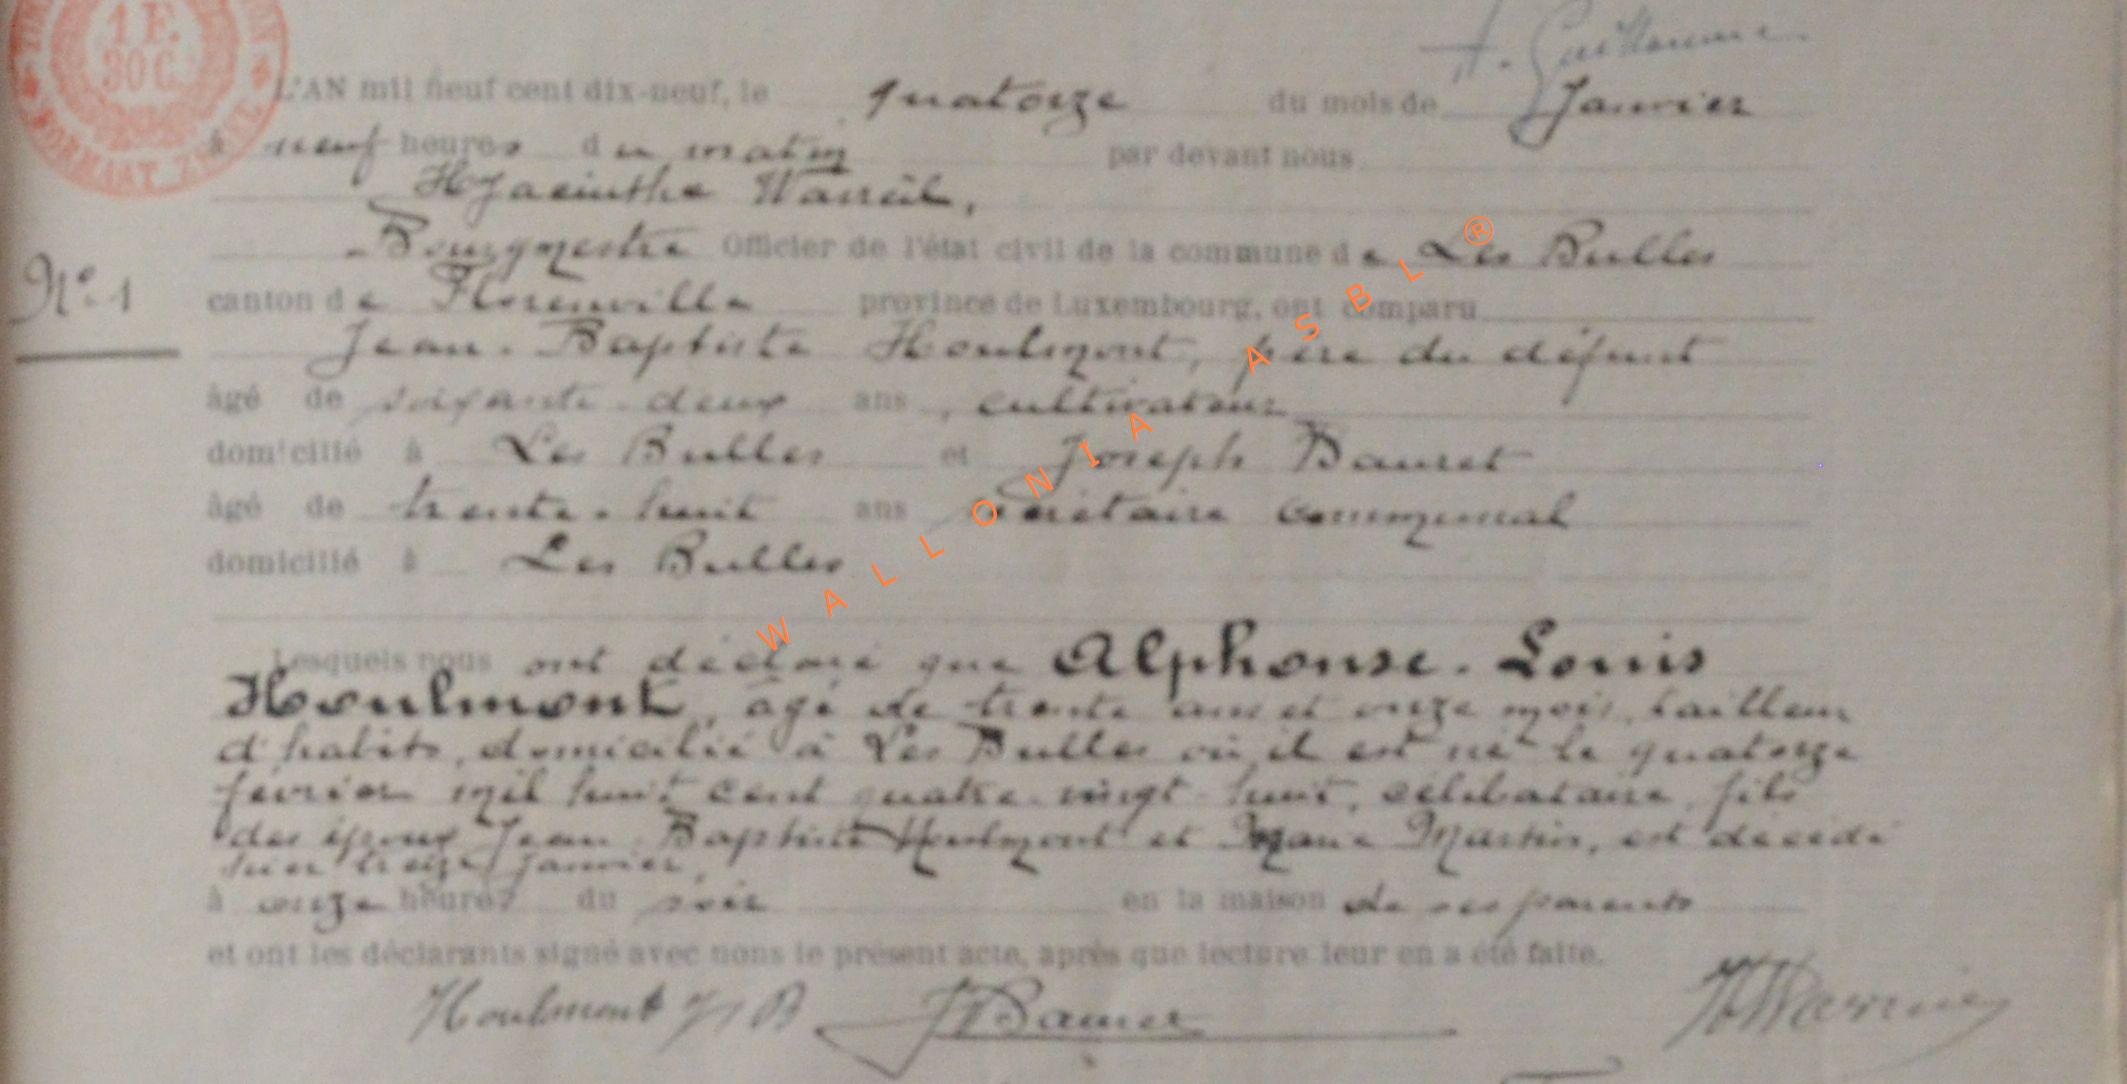 1 F.
30 C.
A. Guillaume
L'AN mil neuf cent dix-neuf, le quatorze du mois de Janvier
à neuf heures du matin par devant nous
Hyacinthe
Bourgmestre Officier de l'état civil de la commune de Les Bulles
N° 1
canton de Florenville province de Luxembourg, ont comparu
Jean-Baptiste Houlmont, père du défunt
âgé de soixante-deux ans, cultivateur
domicilié à Les Bulles et Joseph
âgé de trente-huit ans secrétaire communal
domicilié à Les Bulles
Lesquels nous ont déclaré que Alphonse-Louis
Houlmont, âgé de trente ans et onze mois, tailleur
d'habits, domicilié à Les Bulles où il est né le quatorze
février mil huit cent quatre-vingt-huit, célibataire, fils
des époux Jean-Baptiste Houlmont et Marie Martin, est décédé
hier treize janvier,
à onze heures du soir en la maison de ses parents
et ont les déclarants signé avec nous le présent acte, après que lecture leur en a été faite.
Houlmont J B
WALLONIA ASBL®